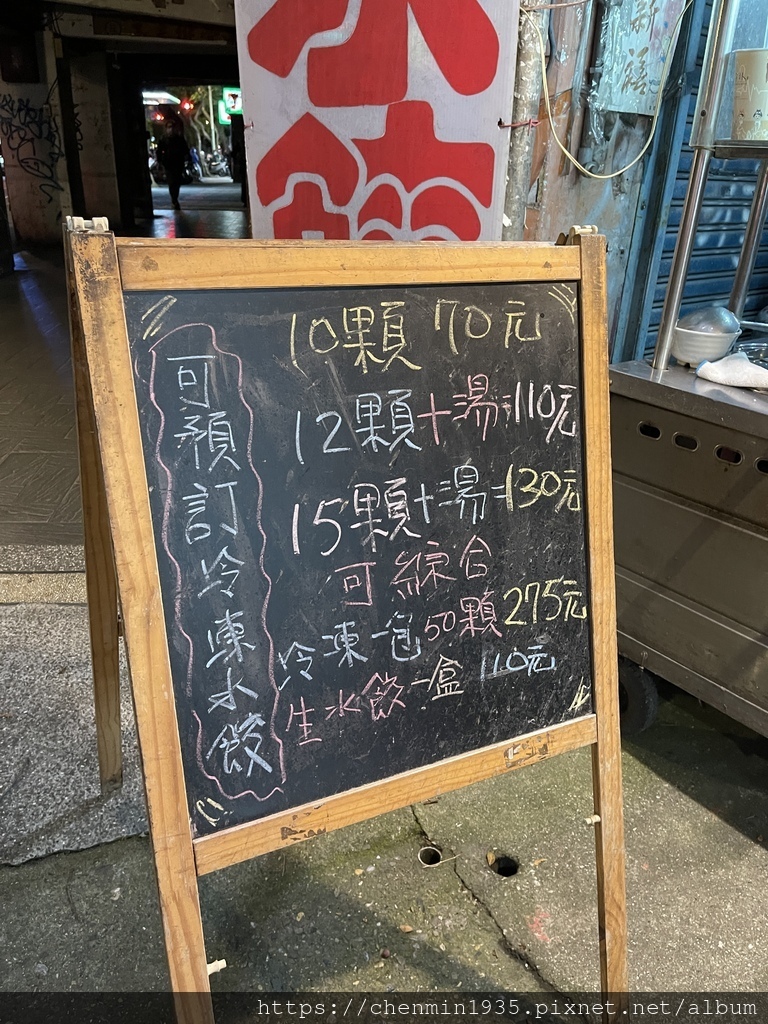 水餃
10顆 70元
12顆+湯=110元
15顆+湯=130元
可綜合
冷凍一包50顆275元
生水餃一盒 110元
可預訂冷凍水餃
https://chenmin1935.pixnet.net/album